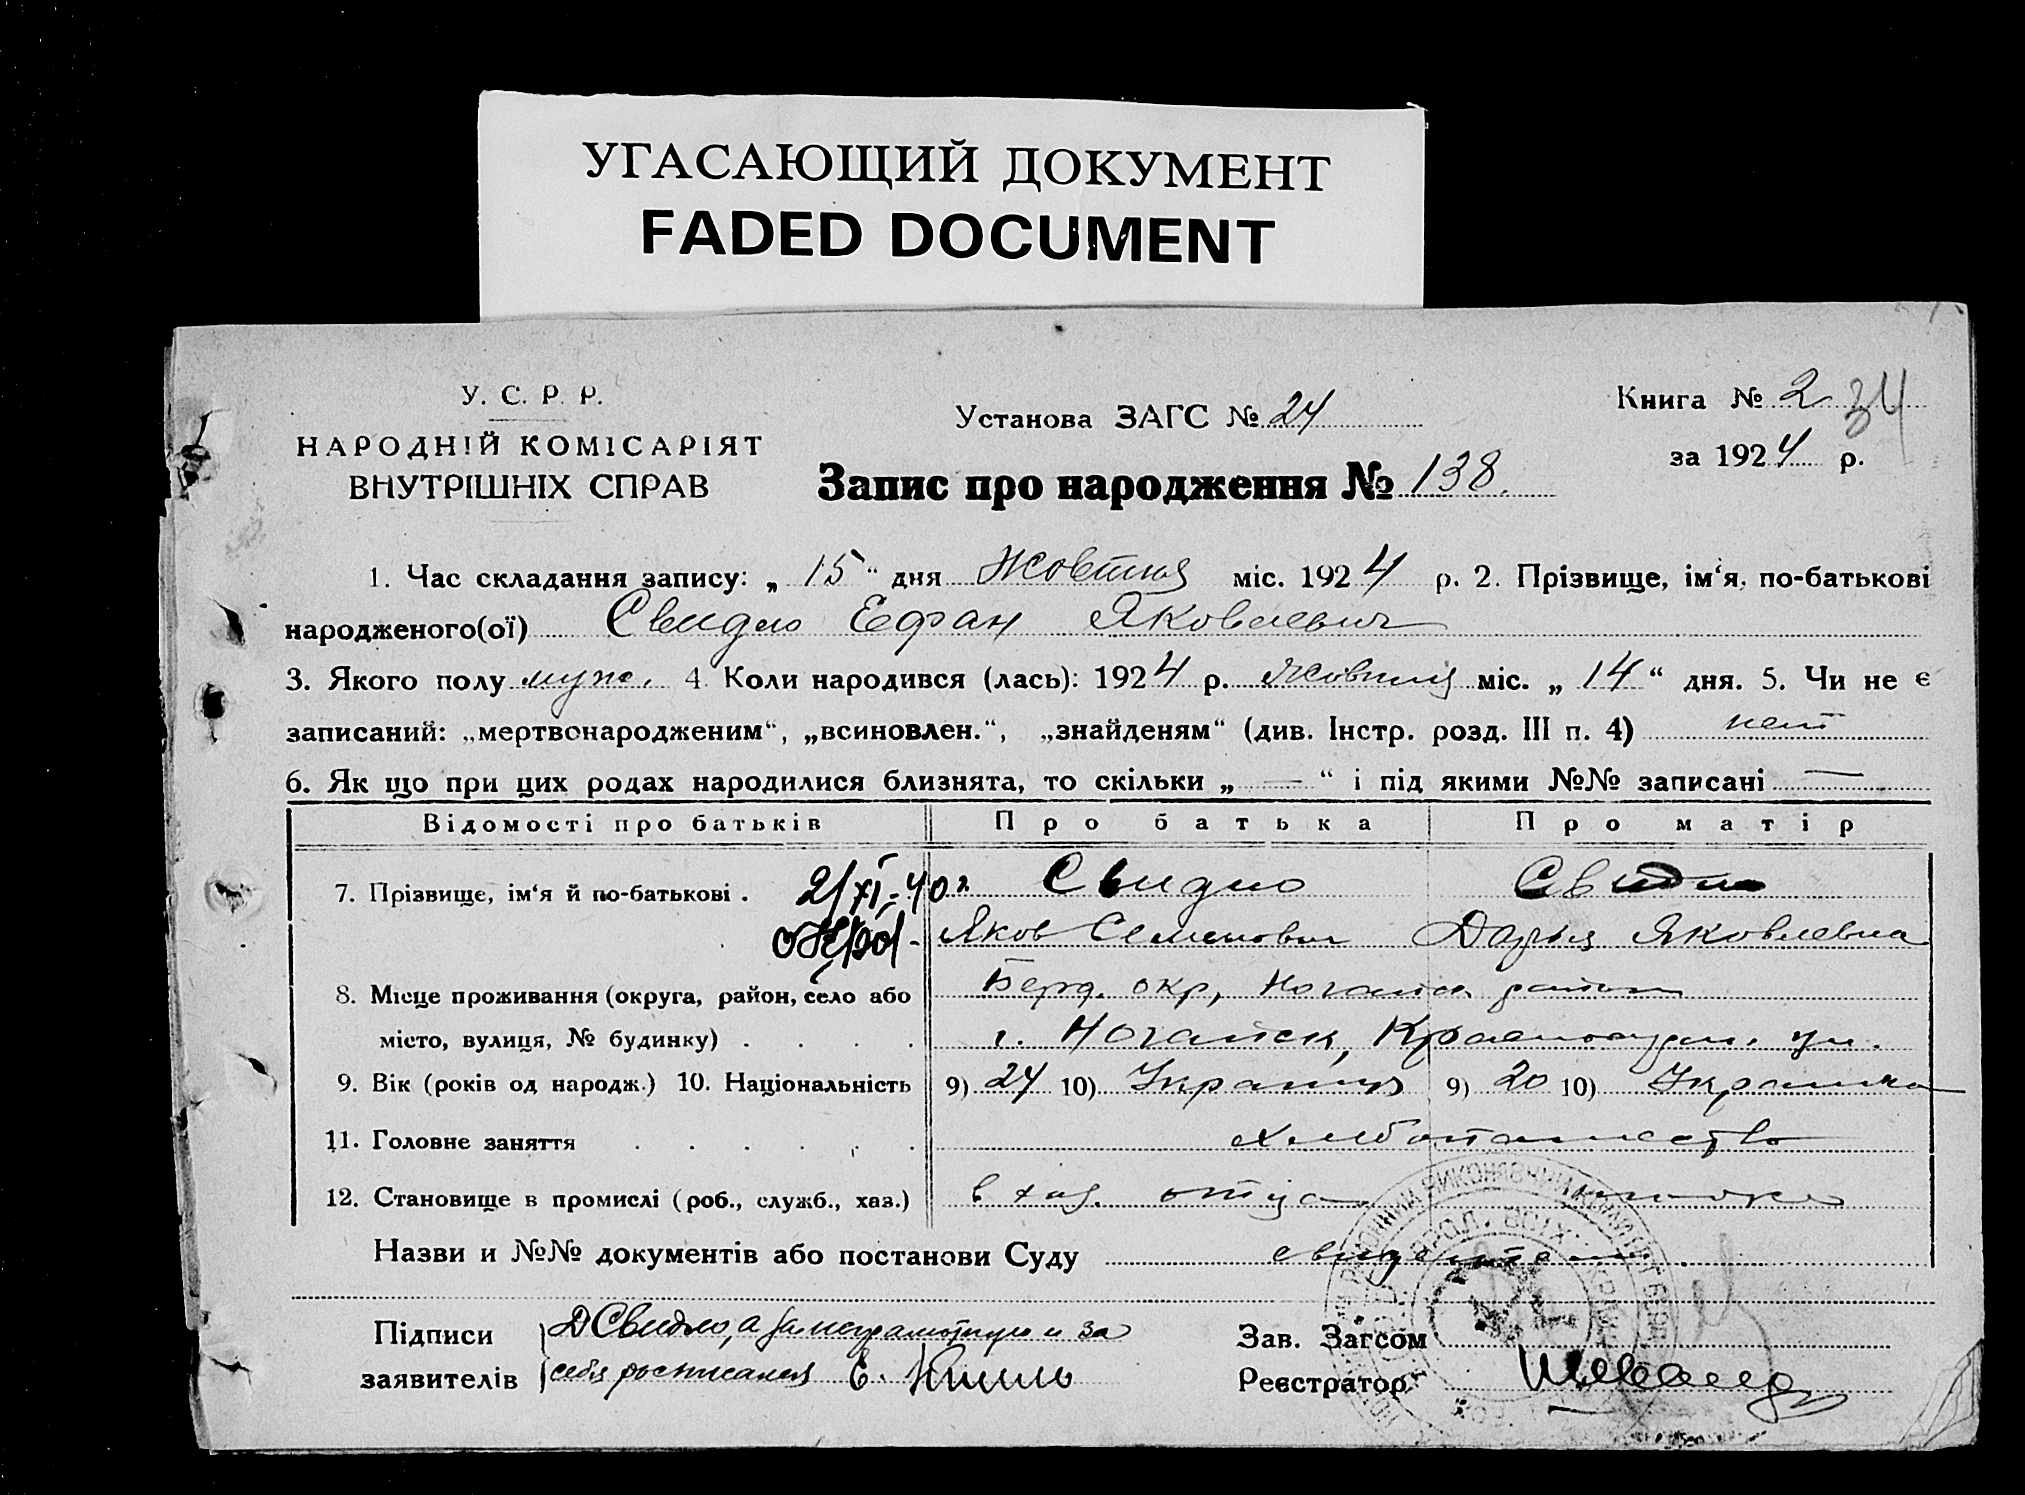 УГАСАЮЩИЙ ДОКУМЕНТ
FADED DOCUMENT
У. С. Р. Р.
НАРОДНІЙ КОМІСАРІЯТ
ВНУТРІШНІХ СПРАВ
Установа ЗАГС № 24
Запис про народження № 138.
Книга № 2 34
за 1924 р.
1. Час складання запису: „ 15 “ дня Жовтня міс. 1924 р. 2. Прізвище, ім‘я, по-батькові
народженого(ої) Свидло Ефран Яковлевич
3. Якого полу муж. 4 Коли народився (лась): 1924 р. Жовтня міс. „ 14 “ дня. 5. Чи не є
записаний: „мертвонародженим“, „всиновлен.“, „знайденям“ (див. Інстр. розд. III п. 4) нет
6. Як що при цих родах народилися близнята, то скільки „ — “ і під якими №№ записані —
Відомості про батьків Про батька Про матір
7. Прізвище, ім‘я й по-батькові . 2/XI-40 г. Свидло Свидло
Яков Семенович Дарья Яковлевна
8. Місце проживання (округа, район, село або Берд. окр, Ногайск. район
місто, вулиця, № будинку) . . . . г. Ногайск, ул.
9. Вік (років од народж.) 10. Національність 9) 24 10) Украинец 9) 20 10) Украинка
11. Головне заняття . . . . . хлебопашество
12. Становище в промислі (роб., служб., хаз.) в хоз. отца
Назви и №№ документів або постанови Суду
Підписи ДСвидло, а за неграмотную и за
заявителів себя росписался Е.
Зав. Загсом
Реєстратор